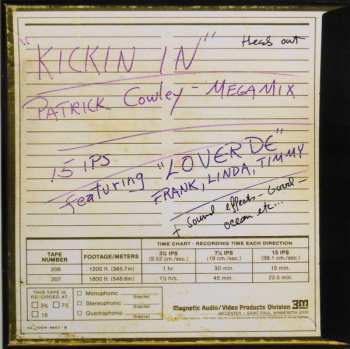 "KICKIN IN"
Heads out
PATRICK COWLEY - MEGAMIX
15 IPS
featuring "LOVERDE"
FRANK, LINDA, TIMMY
+ sound effects -
ocean etc...
TIME CHART - RECORDING TIME EACH DIRECTION
TAPE NUMBER FOOTAGE/METERS 3¾ IPS (9.52 cm./sec.) 7½ IPS (19 cm./sec.) 15 IPS (38.1 cm./sec.)
206 1200 ft. (365.7m) 1 hr 30 min. 15 min.
207 1800 ft. (548.6m) 1½ hrs. 45 min. 22.5 min.
THIS TAPE IS RECORDED AT
3¾ 7½
15
Monophonic
Stereophonic
Quadraphonic
Magnetic Audio/Video Products Division 3M
3M CENTER · SAINT PAUL, MINNESOTA 55101